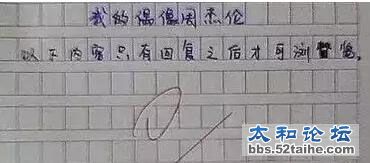 我的偶像周杰伦
以下内容只有回复之后才可浏览。
太和论坛
bbs.52taihe.com